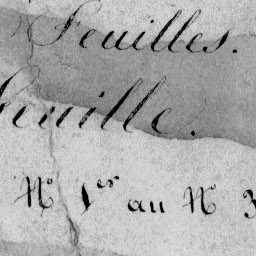 Feuilles.
feuille.
Nº 1er au Nº 3